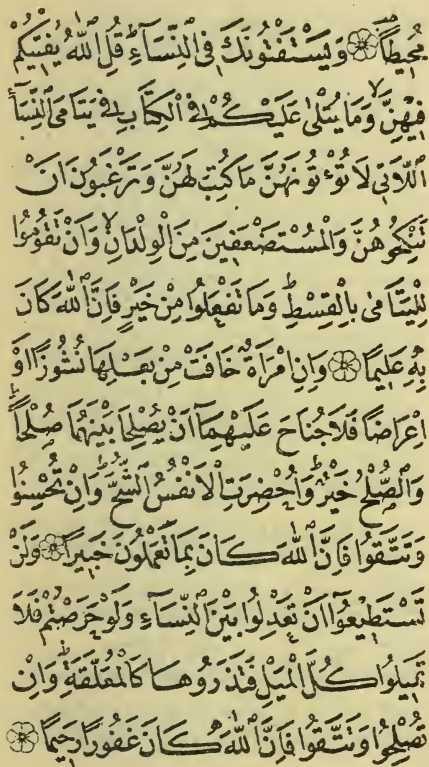 مُحِيطًا ۞ وَيَسْتَفْتُونَكَ فِى ٱلنِّسَآءِ قُلِ ٱللَّهُ يُفْتِيكُمْ
فِيهِنَّ وَمَا يُتْلٰى عَلَيْكُمْ فِى ٱلْكِتَابِ فِى يَتَامَى ٱلنِّسَآءِ
ٱللَّاتِى لَا تُؤْتُونَهُنَّ مَا كُتِبَ لَهُنَّ وَتَرْغَبُونَ اَنْ
تَنْكِحُوهُنَّ وَٱلْمُسْتَضْعَفِينَ مِنَ ٱلْوِلْدَانِ وَاَنْ تَقُومُوا
لِلْيَتَامٰى بِٱلْقِسْطِ وَمَا تَفْعَلُوا مِنْ خَيْرٍ فَاِنَّ ٱللَّهَ كَانَ
بِهِ عَلِيمًا ۞ وَاِنِ ٱمْرَاَةٌ خَافَتْ مِنْ بَعْلِهَا نُشُوزًا اَوْ
اِعْرَاضًا فَلَا جُنَاحَ عَلَيْهِمَآ اَنْ يُصْلِحَا بَيْنَهُمَا صُلْحًا
وَٱلصُّلْحُ خَيْرٌ وَاُحْضِرَتِ ٱلْاَنْفُسُ ٱلشُّحَّ وَاِنْ تُحْسِنُوا
وَتَتَّقُوا فَاِنَّ ٱللَّهَ كَانَ بِمَا تَعْمَلُونَ خَبِيرًا ۞ وَلَنْ
تَسْتَطِيعُوٓا اَنْ تَعْدِلُوا بَيْنَ ٱلنِّسَآءِ وَلَوْ حَرَصْتُمْ فَلَا
تَمِيلُوا كُلَّ ٱلْمَيْلِ فَتَذَرُوهَا كَٱلْمُعَلَّقَةِ وَاِنْ
تُصْلِحُوا وَتَتَّقُوا فَاِنَّ ٱللَّهَ كَانَ غَفُورًا رَحِيمًا ۞